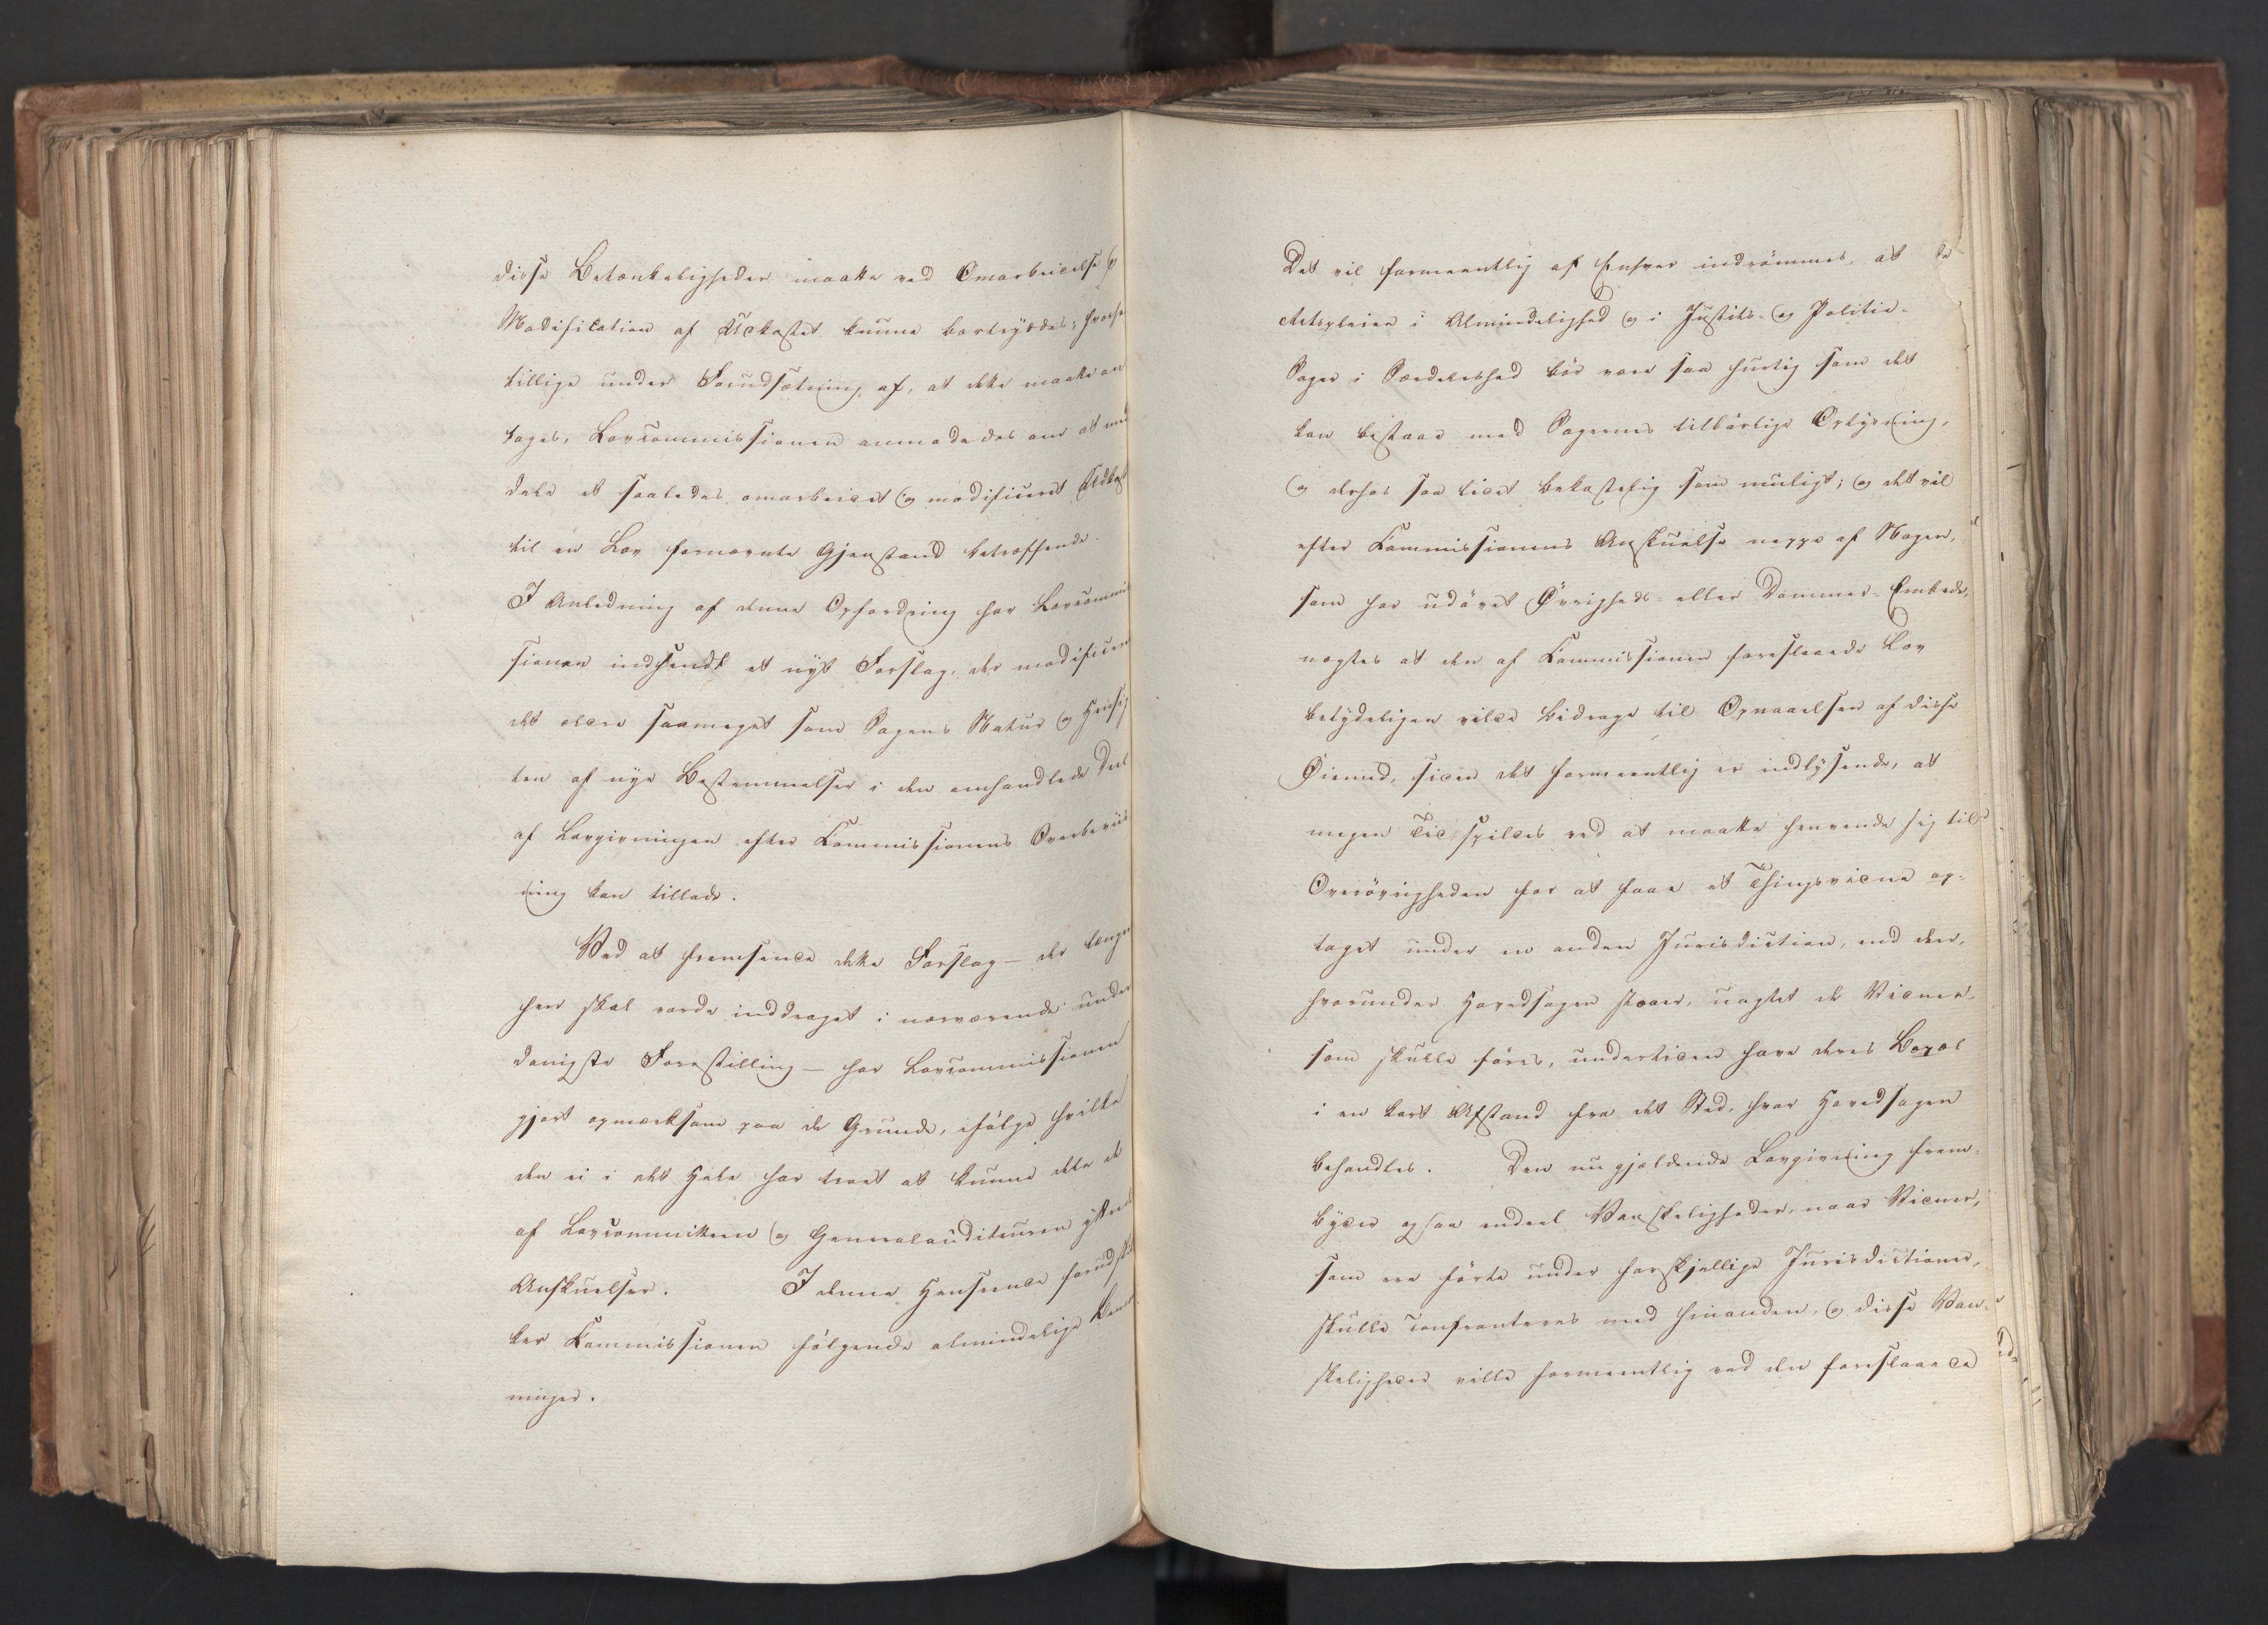 disse Betænkeligheder maatte ved Omarbeidelse og
Modification af Udkastet kunne bortryddes; hvorhos
tillige under Forudsætning af, at dette maatte an
tages, Lovcommissionen anmodedes om at med
dele et saaledes omarbeidet og modificeret Udkast
til en Lov fornævnte Gjenstand betræffende.
I Anledning af denne Opfordring har Lovcommis
sionen indsendt et nyt Forslag, der modificerer
det ældre saameget som Sagens Natur og Hensig
ten af nye Bestemmelser i den omhandlede Deel
af Lovgivningen efter Kommissionens Overbeviis
ning kan tillade.
Ved at fremsende dette Forslag – der længer
hen skal vorde inddraget i nærværende under
danigste Forestilling – har Lovcommissionen
gjort opmærksom paa de Grunde, ifølge hvilke
den ei i det Hele har troet at kunne dele de
af Lovcommitteen og Generalauditeuren yttrede
Anskuelser. I denne Henseende forudskik
ker Kommissionen følgende almindelige Bemærk
ninger.
Det vil formeentlig af Enhver indrømmes, at
Retspleien i Almindelighed og i Justits- og Politie-
Sager i Særdeleshed bør være saa hurtig som det
kan bestaae med Sagernes tilbørlige Oplysning,
og derhos saa lidet bekostelig som muligt; og det vil
efter Kommissionens Anskuelse neppe af Nogen,
som har udøvet Øvrigheds- eller Dommer-Embede,
negtes at den af Kommissionen foreslaaede Lov
betydeligen vilde bidrage til Opnaaelsen af disse
Øiemed, siden det formeentlig er indlysende, at
megen Tid spildes ved at maatte henvende sig til
Overøvrigheden for at faae et Thingsvidne op-
taget under en anden Jurisdiction, end den,
hvorunder Hovedsagen staaer, uagtet de Vidner,
som skulle føres, undertiden have deres Bopæl
i en kort Afstand fra det Sted, hvor Hovedsagen
behandles. Den nu gjældende Lovgivning frem-
byder ogsaa endeel Vanskeligheder, naar Vidner,
som ere førte under forskjellige Jurisdictioner,
skulle confronteres med hinanden, og disse Van-
skeligheder ville formeentlig ved den foreslaaede